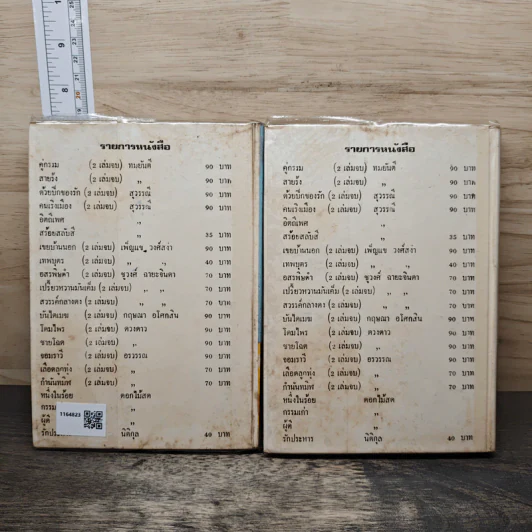 รายการหนังสือ
คู่กรรม (2 เล่มจบ) ทมยันตี 90 บาท
สายรุ้ง (2 เล่มจบ) ,, 90 บาท
ด้วยปีกของรัก (2 เล่มจบ) สุวรรณี 90 บาท
คนเริงเมือง (2 เล่มจบ) สุวรรณี 90 บาท
อิตถีเพศ ,,
สร้อยสลับสี ,, 35 บาท
เขยบ้านนอก (2 เล่มจบ) เพ็ญแข วงศ์สง่า 90 บาท
เทพบุตร (2 เล่มจบ) ,, ,, 40 บาท
อสรพิษดำ (2 เล่มจบ) ชูวงศ์ ฉายะจินดา 70 บาท
เปรี้ยวหวานมันเค็ม (2 เล่มจบ) ,, ,, 70 บาท
สวรรค์กลางดง (2 เล่มจบ) ,, ,, 70 บาท
บันไดเมฆ (2 เล่มจบ) กฤษณา อโศกสิน 90 บาท
โดมไพร (2 เล่มจบ) ดวงดาว 90 บาท
ชายโฉด (2 เล่มจบ) ,, 90 บาท
จอมราวี (2 เล่มจบ) อรวรรณ 90 บาท
เลือดลูกทุ่ง (2 เล่มจบ) ,, 70 บาท
กำนันทมิฬ (2 เล่มจบ) ,, 70 บาท
หนึ่งในร้อย ดอกไม้สด
กรรม ,,
ผู้ดี ,,
รักประหาร นิดิกุล 40 บาท
1164823
รายการหนังสือ
คู่กรรม (2 เล่มจบ) ทมยันตี 90 บาท
สายรุ้ง (2 เล่มจบ) ,, 90 บาท
ด้วยปีกของรัก (2 เล่มจบ) สุวรรณี 90 บาท
คนเริงเมือง (2 เล่มจบ) สุวรรณี 90 บาท
อิตถีเพศ ,,
สร้อยสลับสี ,, 35 บาท
เขยบ้านนอก (2 เล่มจบ) เพ็ญแข วงศ์สง่า 90 บาท
เทพบุตร (2 เล่มจบ) ,, ,, 40 บาท
อสรพิษดำ (2 เล่มจบ) ชูวงศ์ ฉายะจินดา 70 บาท
เปรี้ยวหวานมันเค็ม (2 เล่มจบ) ,, ,, 70 บาท
สวรรค์กลางดง (2 เล่มจบ) ,, ,, 70 บาท
บันไดเมฆ (2 เล่มจบ) กฤษณา อโศกสิน 90 บาท
โดมไพร (2 เล่มจบ) ดวงดาว 90 บาท
ชายโฉด (2 เล่มจบ) ,, 90 บาท
จอมราวี (2 เล่มจบ) อรวรรณ 90 บาท
เลือดลูกทุ่ง (2 เล่มจบ) ,, 70 บาท
กำนันทมิฬ (2 เล่มจบ) ,, 70 บาท
หนึ่งในร้อย ดอกไม้สด
กรรมเก่า ,,
ผู้ดี ,,
รักประหาร นิดิกุล 40 บาท